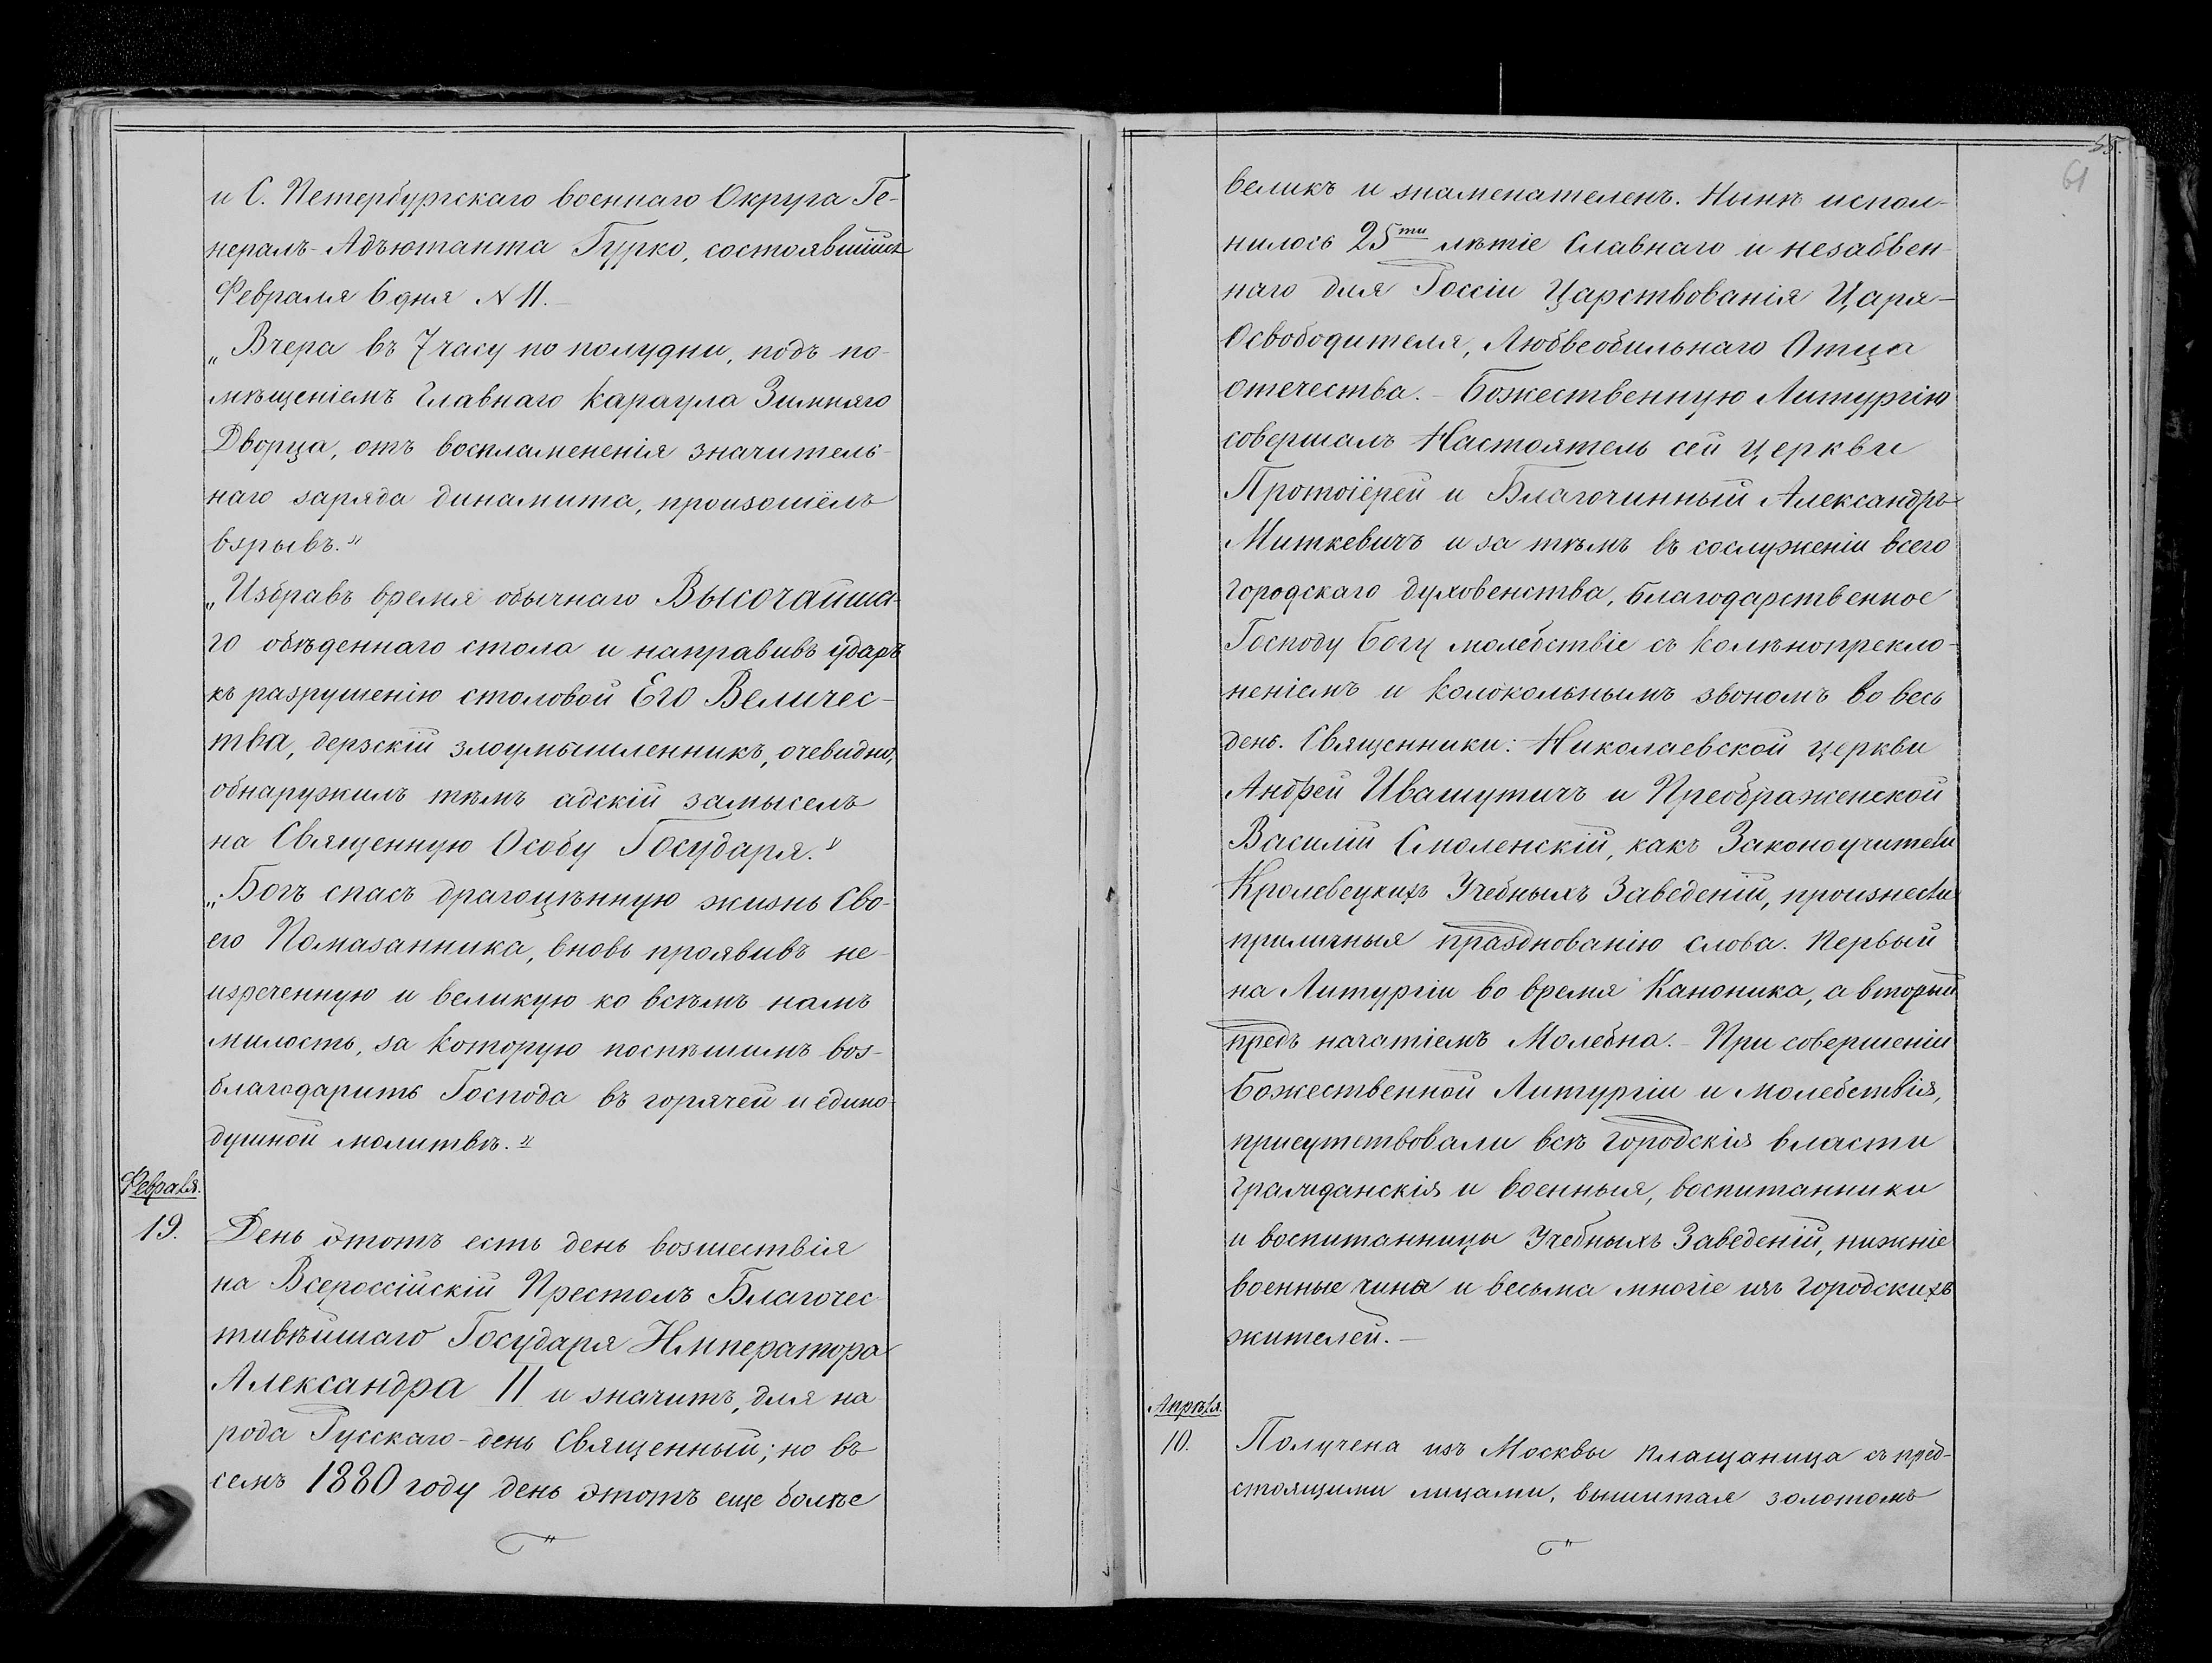 и С. Петербургскаго военнаго Округа Ге-
нералъ-Адъютанта Гурко, состоявшійся
Февраля 6 дня № 11.-
„Вчера въ 7 часу по полудни, подъ по-
мѣщеніемъ Главнаго Караула Зимняго
Дворца, отъ воспламененія значитель-
наго заряда динамита, произошелъ
взрывъ."
„Избравъ время обычнаго Высочайша-
го обѣденнаго стола и направивъ ударъ
къ разрушенію столовой Его Величес-
тва, дерзкій злоумышленникъ, очевидно,
обнаружилъ тѣмъ адскій замыселъ
на Священную Особу Государя."
„Богъ спасъ драгоцѣнную жизнь Сво-
его Помазанника, вновь проявивъ не-
изреченную и великую ко всѣмъ намъ
милость, за которую поспѣшимъ воз-
благодарить Господа въ горячей и едино-
душной молитвѣ."
Февраля.
19.
День этотъ есть день возшествія
на Всероссійскій Престолъ Благочес
тивѣйшаго Государя Императора
Александра II и значитъ, для на
рода Русскаго-день Священный; но въ
семъ 1880 году день этотъ еще болѣе
55.
61
великъ и знаменателенъ. Нынѣ испол-
нилось 25ти лѣтіе Славнаго и незабвен-
наго для Россіи Царствованія Царя-
Освободителя, Любвеобильнаго Отца
отечества.- Божественную Литургію
совершалъ Настоятель сей церкви
Протоіерей и Благочинный Александръ
Миткевичъ и за тѣмъ въ сослуженіи всего
городскаго духовенства, благодарственное
Господу Богу молебствіе съ колѣнопрекло-
неніемъ и колокольнымъ звономъ во весь
день. Священники: Николаевской церкви
Андрей Ивашутичъ и Преображенской
Василій Смоленскій, какъ Законоучители
Кролевецкихъ Учебныхъ Заведеній, произнесли
приличныя празднованію слова. Первый
на Литургіи во время Каноника, а вторый
предъ начатіемъ Молебна.- При совершеніи
Божественной Литургіи и Молебствія,
присутствовали всѣ городскія власти
гражданскія и военныя, воспитанники
и воспитанницы Учебныхъ Заведеній, нижніе
военные чины и весьма многіе изъ городскихъ
жителей.-
Апрѣля.
10.
Получена изъ Москвы плащаница съ пред-
стоящими лицами, вышитая золотомъ